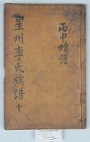 丙申補譜
星州李氏族譜 十